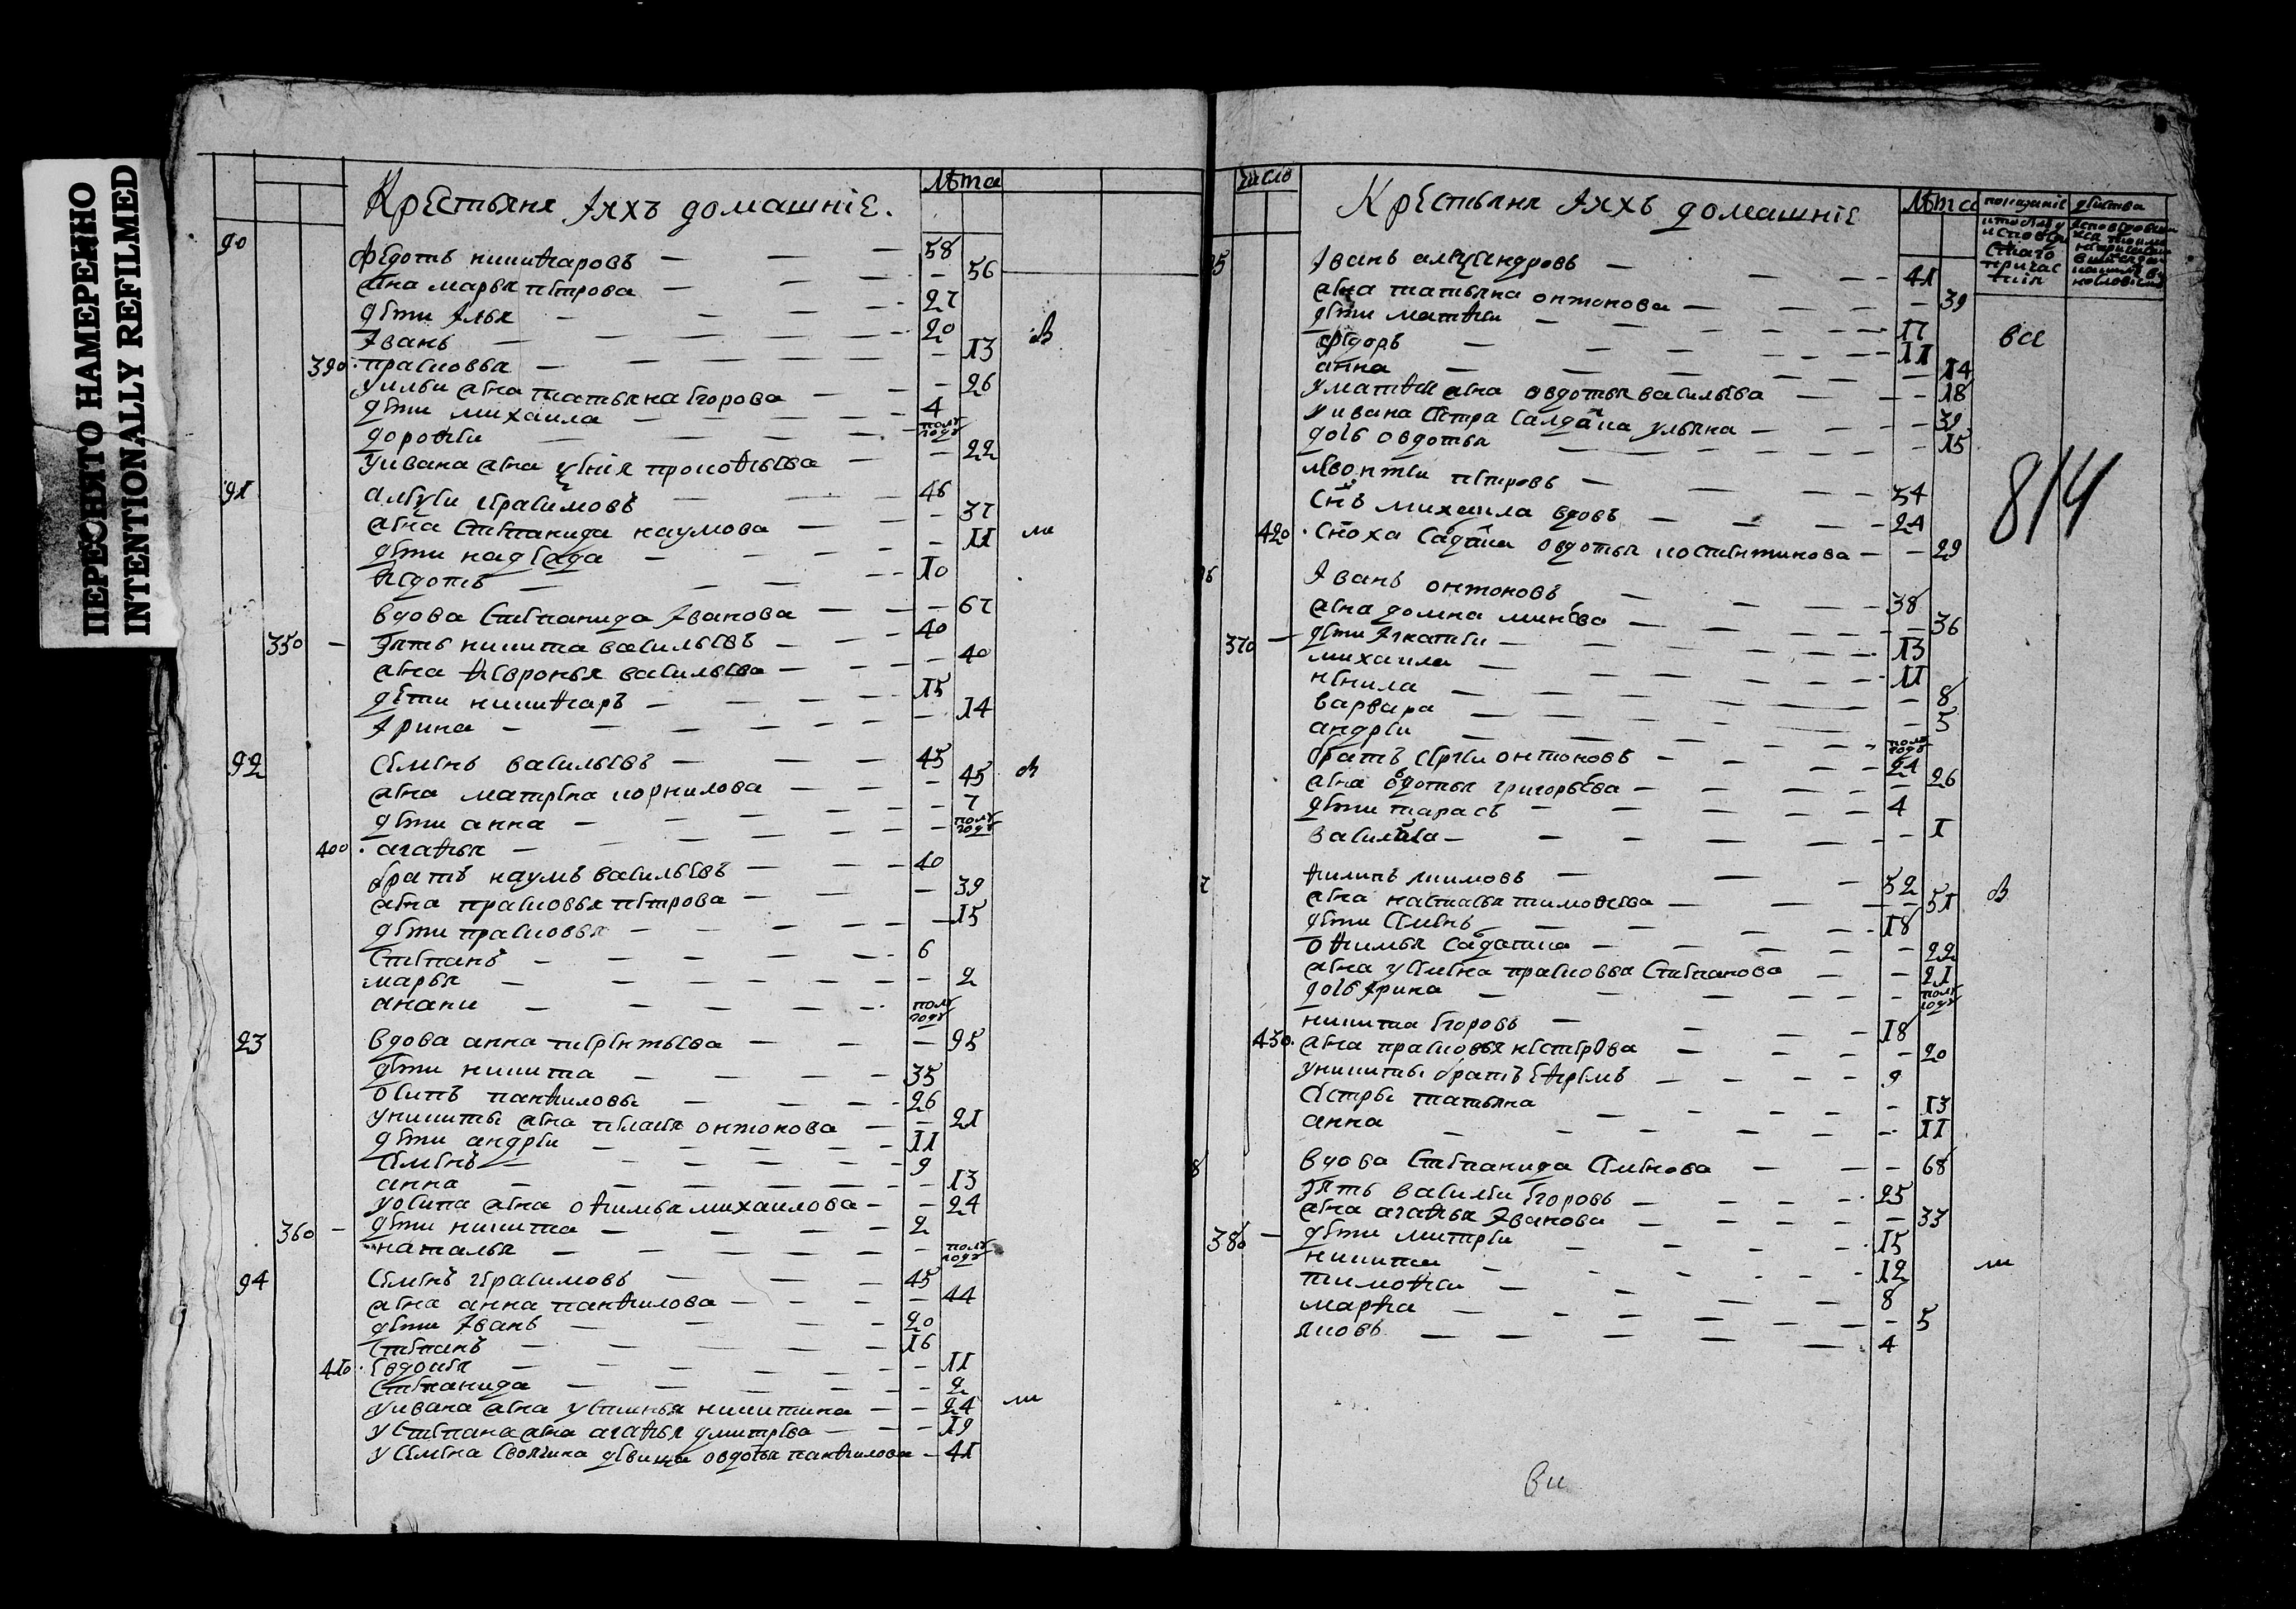 ПЕРЕСНЯТО НАМЕРЕННО
INTENTIONALLY REFILMED
лѣта
Крестьяня Ихъ домашніе.
90 Федотъ никифаровъ — 58
жена марья петрова — 56
дети Илья — 27
Іванъ — 20
390 прасковья — 13
у ильи жена татьяна егорова — 26
дети михаила — 4
дорофеи — полъ годъ
у ивана жена ксенія прокофьева — 22
91 алексеи герасимовъ — 46
жена степанида наумова — 37
дети надежда — 11
федотъ — 10
вдова степанида Іванова — 67
350 — зять никита васильевъ — 40
жена февронья васильева — 40
дети никифаръ — 15
Ирина — 14
92 семенъ васильевъ — 45
жена матрена корнилова — 45
дети анна — 7
400 агафья — полъ годъ
братъ наумъ васильевъ — 40
жена прасковья петрова — 39
дети прасковья — 15
степанъ — 6
марья — 2
анани — полъ годъ
93 вдова анна терентьева — 95
дети никита — 35
осипъ панфиловы — 26
у никиты жена пелагея онтонова — 21
дети андреи — 11
семенъ — 9
анна — 13
у осипа жена офимья михаилова — 24
360 — дети никита — 2
наталья — полъ годъ
94 семенъ герасимовъ — 45
жена анна панфилова — 44
дети Іванъ — 20
степанъ — 16
410 евдокея — 11
степанида — 2
у ивана жена устинья никитина — 24
у степана жена агафья дмитрева — 19
у семена своячина девища овдотья панфилова — 41
число
Крестьяня Ихъ домашніе
лѣта
95 Іванъ александровъ — 41
жена татьяна онтонова — 39
дети матфеи — 17
федоръ — 11
анна — 14
у матфея жена овдотья васильева — 18
у ивана сестра салдатка ульяна — 39
дочь овдотья — 15
все
814
левонтеи петровъ — 54
сынъ михаила вдовъ — 24
420 сноха салдатка овдотья костентинова — 29
96 Іванъ онтоновъ — 38
жена домна минеева — 36
370 — дети Игнатеи — 13
михаила — 11
ненила — 8
варвара — 5
андреи — полъ годъ
братъ сергеи онтоновъ — 24
жена овдотья григорьева — 26
дети тарасъ — 4
василиса — 1
7 филипъ екимовъ — 52
жена настасья тимофеева — 51
дети семенъ — 18
офимья салдатка — 22
жена у семена прасковья степанова — 21
дочь Ирина — полъ годъ
никита егоровъ — 18
430 жена прасковья нестерова — 20
у никиты братъ ефремъ — 9
сестры татьяна — 13
анна — 11
8 вдова степанида семенова — 68
зять василеи егоровъ — 25
жена агафья Іванова — 33
380 — дети митреи — 15
никита — 12
тимофеи — 8
марфа — 5
яковъ — 4